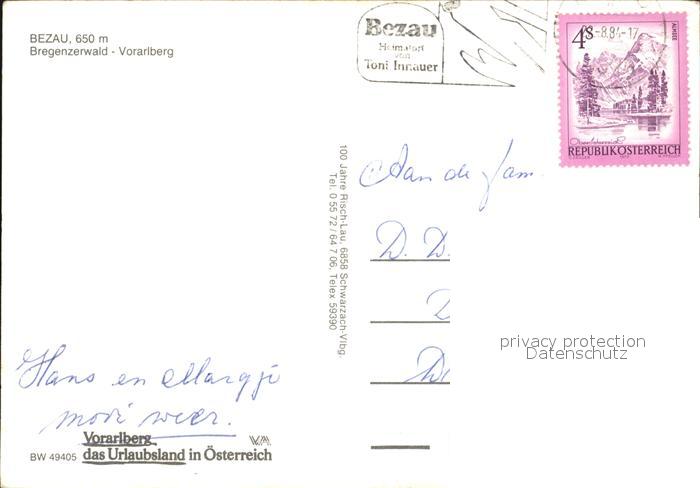 BEZAU, 650 m
Bregenzerwald - Vorarlberg
Bezau
Heimatort
von
Toni Innauer
-8.84-17
4S
ALMSEE
REPUBLIK ÖSTERREICH
100 Jahre Risch-Lau, 6858 Schwarzach-Vlbg.
Tel. 0 55 72 / 64 7 06, Telex 59390
Aan de fam.
D. D.
D
privacy protection
Datenschutz
Hans en Margje
mooi weer.
Vorarlberg
das Urlaubsland in Österreich
BW 49405